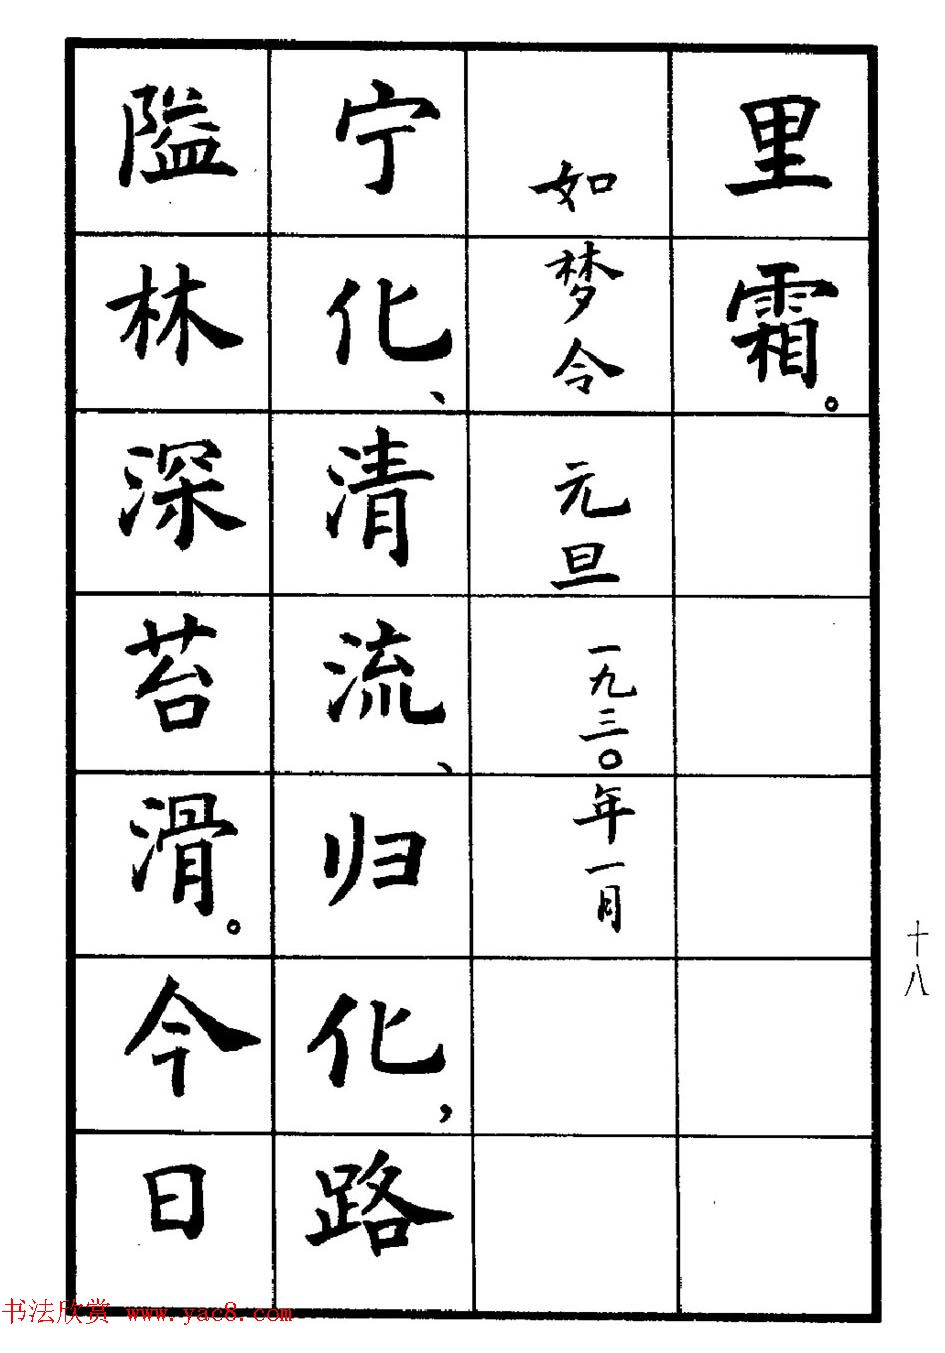 里霜。
如梦令 元旦 一九三〇年一月
宁化、清流、归化,路
隘林深苔滑。今日
十八
书法欣赏 www.yac8.com